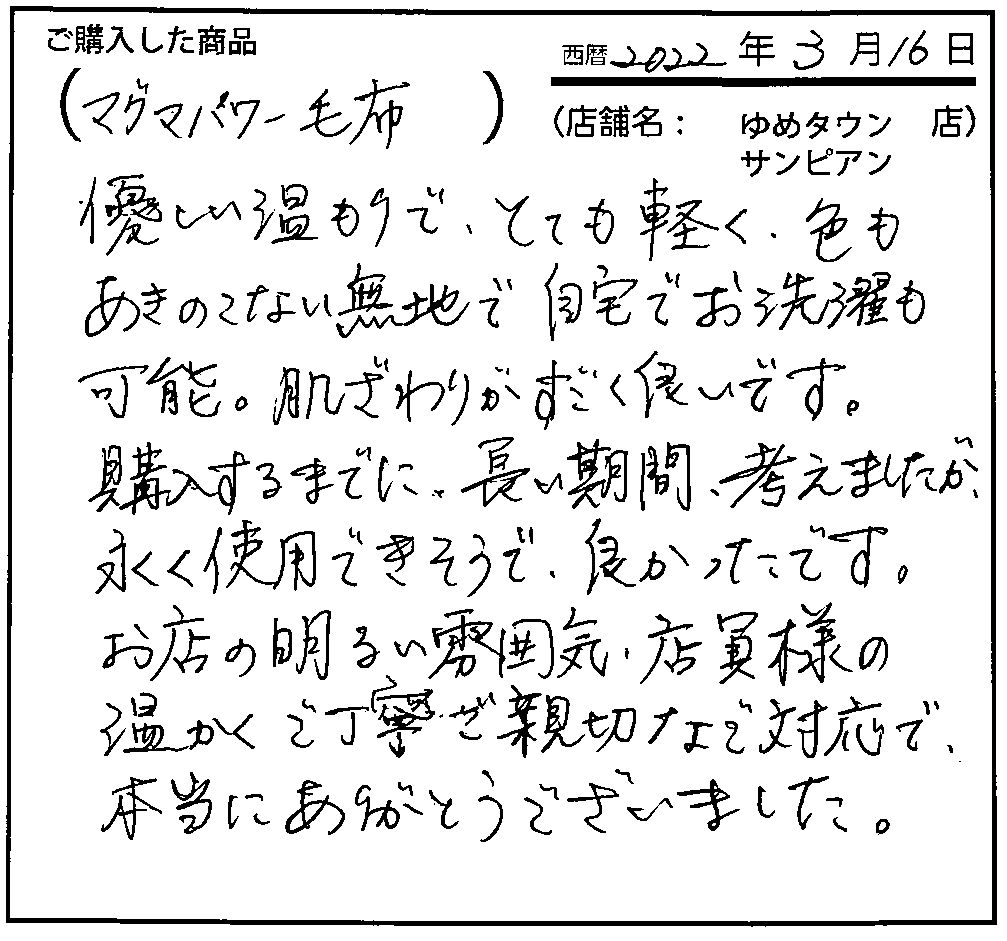 ご購入した商品
西暦 2022 年 3 月 16 日
(マグマパワー毛布)
(店舗名： ゆめタウン 店)
サンピアン
優しい温もりで、とても軽く、色も
あきのこない無地で自宅でお洗濯も
可能。肌ざわりがすごく良いです。
購入するまでに、長い期間、考えましたが、
永く使用できそうで、良かったです。
お店の明るい雰囲気、店員様の
温かくご丁寧でご親切なご対応で、
本当にありがとうございました。